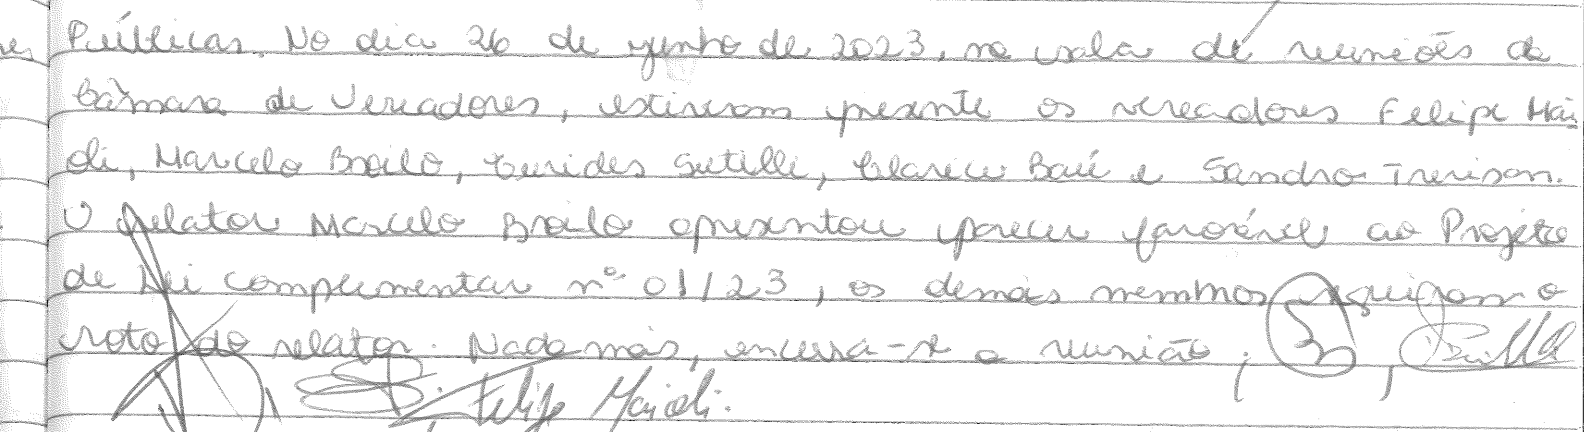 Públicas. No dia 26 de junho de 2023, na sala de reuniões da
Câmara de Vereadores, estiveram presente os vereadores Felipe Mai
oli, Marcelo Broilo, Eurides Sutilli, Clarice Baú e Sandro Trevisan.
O relator Marcelo Broilo apresentou parecer favorável ao Projeto
de Lei complementar nº 01/23, os demais membros seguiram o
voto do relator. Nada mais, encerra-se a reunião.
Felipe Maioli.